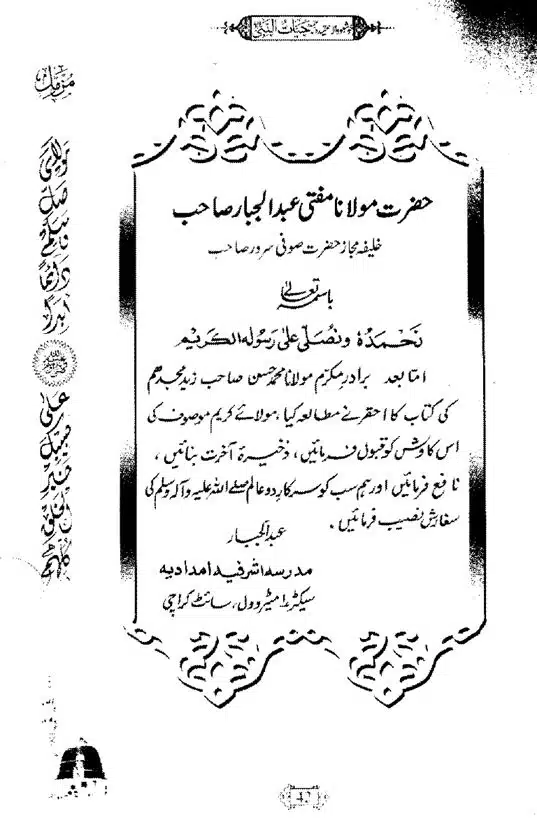 حیات النبی
مزمل
مولای صل وسلم دائما ابدا
علی حبیبک خیر الخلق کلهم
حضرت مولانا مفتی عبدالجبار صاحب
خلیفہ مجاز حضرت صوفی سرور صاحب
باسمہ تعالیٰ
نحمدہٗ ونصلی علیٰ رسولہ الکریم
امابعد برادرِ مکرم مولانا محمد حسن صاحب زید مجدھم
کی کتاب کا احقر نے مطالعہ کیا، مولائے کریم موصوف کی
اس کاوش کو قبول فرمائیں، ذخیرۂ آخرت بنائیں،
نافع فرمائیں اور ہم سب کو سرکارِ دو عالم صلے اللہ علیہ وآلہ وسلم کی
سفارش نصیب فرمائیں۔
عبدالجبار
مدرسہ اشرفیہ امدادیہ
میٹروول، سائٹ کراچی